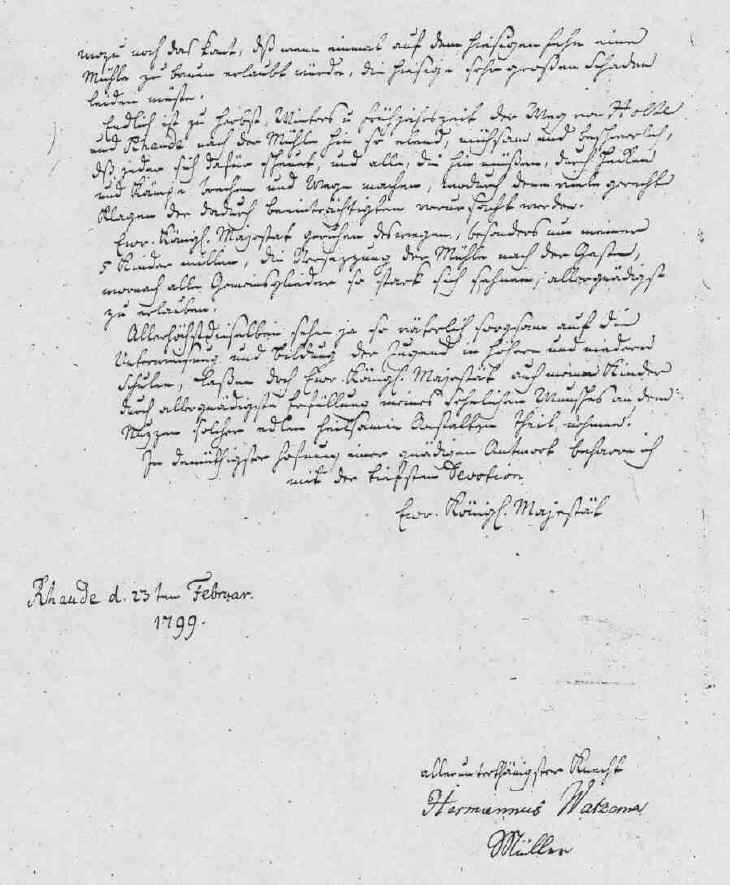 wozu noch das komt, daß wenn einmal auf dem hiesigen Fehn eine
Mühle zu bauen erlaubt würde, die hiesige sehr großen Schaden
leiden müste.
Endlich ist zu Herbst, Winters u Frühjahrszeit der Weg von Holte
und Rhaude nach der Mühle hin so elend, mühsam und beschwerlich,
daß jeder sich dafür scheuet, und alle, die hin müßen, durch Hecken
und Kämpe brechen und Wege machen, wodurch denn viele gerechte
Klagen der dadurch beeinträchtigten verursacht werden.
Ewr. Königl. Majestät geruhen deswegen, besonders um meiner
5 Kinder willen, die Versezzung der Mühle nach der Gaste,
wornach alle Gemeinsglieder so stark sich sehnen, allergnädigst
zu erlauben.
Allerhöchstdieselben sehen ja so väterlich sorgsam auf die
Unterweisung und Bildung der Jugend in höhern und niedern
Schulen, Laßen doch Ewr. Königl. Majestät auch meine Kinder
durch allergnädigste Erfüllung meines sehnlichen Wunsches an dem
Nuzzen solcher edlen heilsamen Anstalten theil nehmen.
In demüthigster Hofnung einer gnädigen Antwort beharre ich
mit der tiefsten Devotion
Ewr. Königl. Majestät
Rhaude d. 23ten Februar.
1799.
allerunterthänigster Knecht
Hermannus
Müller